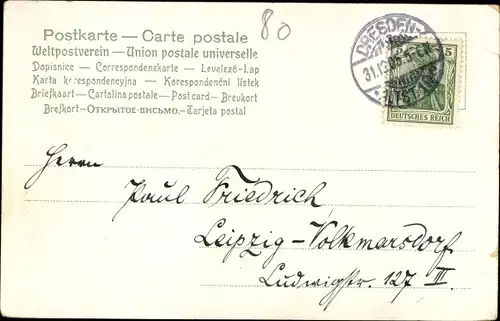 Postkarte — Carte postale
80
Weltpostverein — Union postale universelle
Dopisnice — Correspondenzkarte — Levelező-Lap
Karta korespondencyjna — Korespondenční listek
Briefkaart — Cartolina postale — Postcard — Brevkort
Brefkort — Открытое письмо. — Tarjeta postal
DRESDEN-
ALTST.
5
DEUTSCHES REICH
Herrn
Paul Friedrich
Leipzig-Volkmarsdorf
Ludwigstr. 127 III